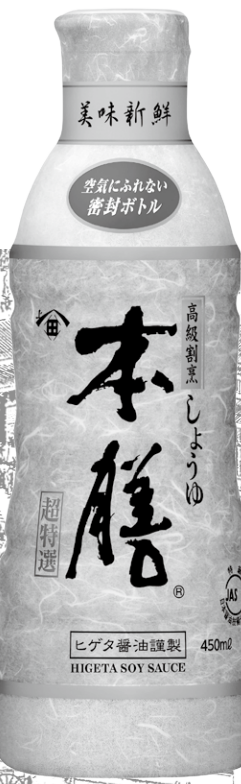 美味新鮮
空気にふれない
密封ボトル
高級割烹 しょうゆ
本膳
超特選
®
ヒゲタ醤油謹製
450mℓ
HIGETA SOY SAUCE
JAS